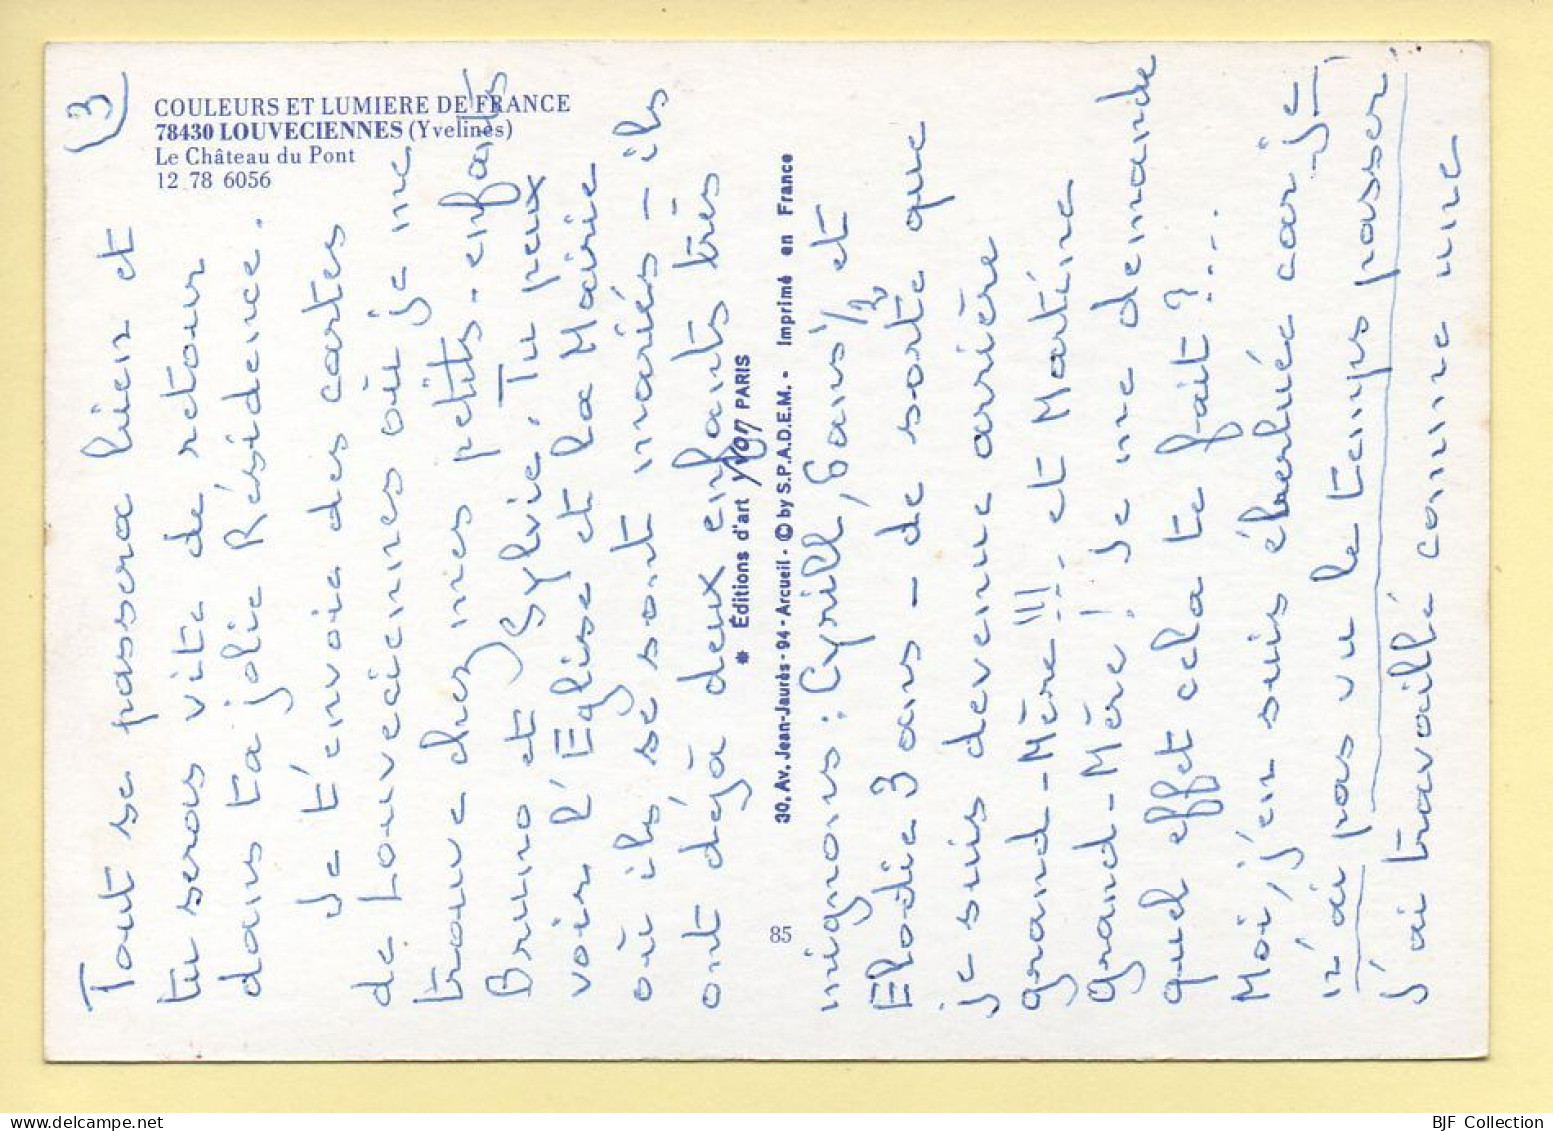 COULEURS ET LUMIERE DE FRANCE
78430 LOUVECIENNES (Yvelines)
Le Château du Pont
12 78 6056
3
Tout se passera bien et
tu seras vite de retour
dans ta jolie Résidence.
Je t'envoie des cartes
de Louveciennes où je me
trouve chez mes petits-enfants
Bruno et Sylvie. Tu peux
voir l'Eglise et la Mairie
où ils se sont mariés - ils
ont déjà deux enfants très
mignons : Cyrill, 6 ans 1/2 et
Elodie 3 ans - de sorte que
je suis devenue arrière
grand-Mère !!! et Martine
Grand-Mère ! Je me demande
quel effet cela te fait ?...
Moi, j'en suis éberluée car je
n'ai pas vu le temps passer
j'ai travaillé comme une
* Éditions d'art yvon PARIS
30, Av. Jean-Jaurès - 94 - Arcueil - © by S.P.A.D.E.M. - Imprimé en France
85
BJF Collection